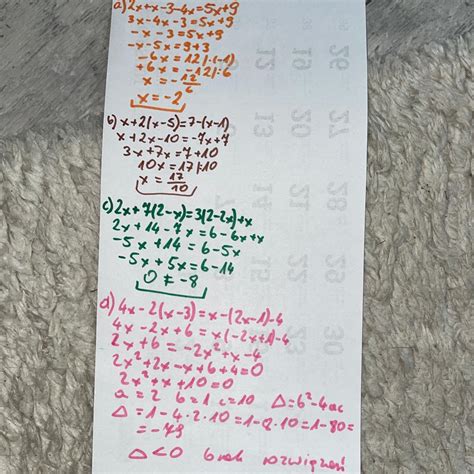 a) 2x+x-3-4x=5x+9
3x-4x-3=5x+9
-x-3=5x+9
-x-5x=9+3
-6x=12|·(-1)
+6x=-12|:6
x=-12/6
x=-2
b) x+2(x-5)=7-(x-1)
x+2x-10=-7x+7
3x+7x=7+10
10x=17|:10
x=17/10
c) 2x+7(2-x)=3(2-2x)+x
2x+14-7x=6-6x+x
-5x+14=6-5x
-5x+5x=6-14
0≠-8
d) 4x-2(x-3)=x-(2x-1)-4
4x-2x+6=x(-2x+1)-4
2x+6=-2x²+x-4
2x²+2x-x+6+4=0
2x²+x+10=0
a=2 b=1 c=10 Δ=b²-4ac
Δ=1-4·2·10=1-8·10=1-80=
=-79
Δ<0 brak rozwiązań
26 19 12
27 20 13
28 21 14
29 22 15
30 23